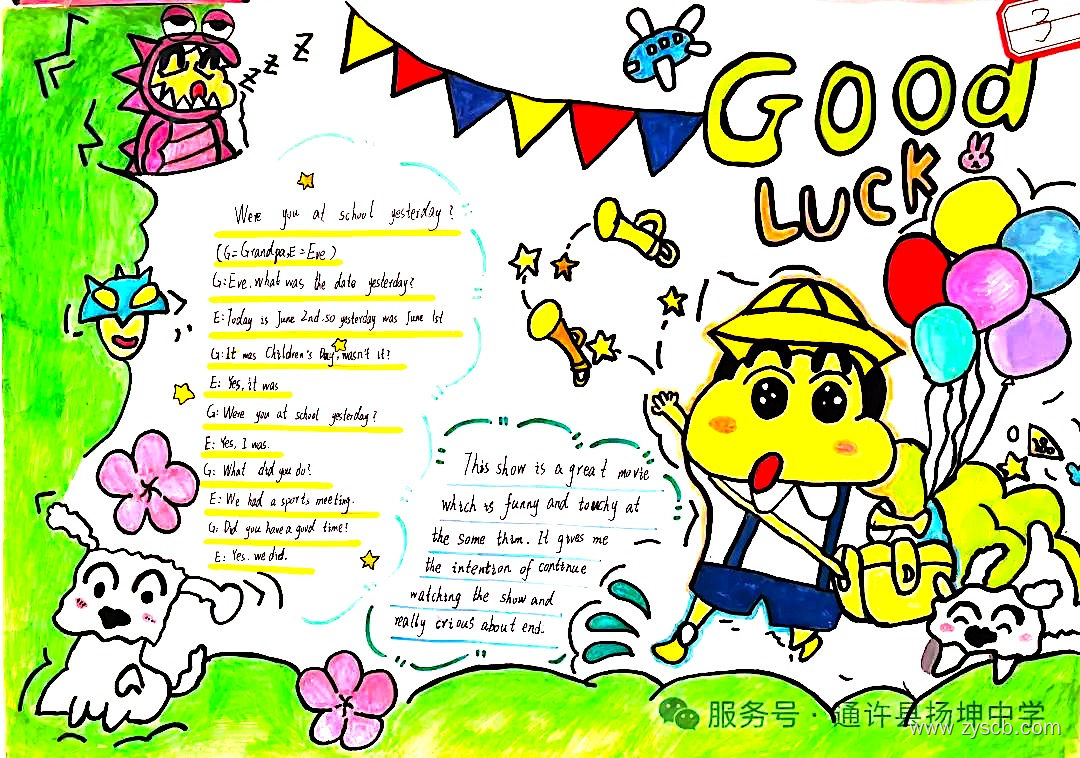 3
z z z
GOOD
LUCK
Were you at school yesterday?
(G=Grandpa,E=Eve)
G:Eve.what was the date yesterday?
E:Today is June 2nd.so yesterday was June 1st
G:It was Children's Day,wasn't it?
E: Yes, it was
G: Were you at school yesterday?
E: Yes, I was.
G: What did you do?
E: We had a sports meeting.
G: Did you have a good time!
E: Yes. we did.
This show is a great movie
which is funny and touchy at
the some thim. It gives me
the intention of continue
watching the show and
really crious about end.
服务号 · 通许县扬坤中学
www.zyscb.com